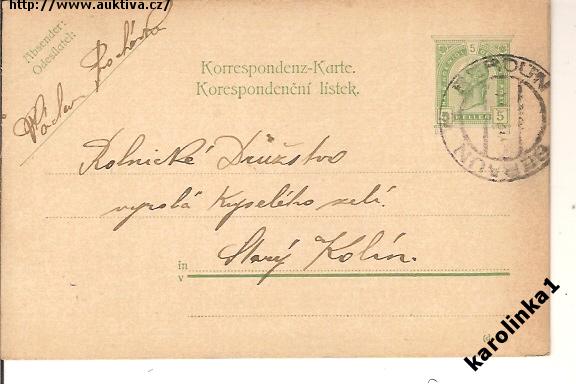 http://www.auktiva.cz/
Absender:
Odesílatel:
Václav Procházka
Korrespondenz-Karte.
Korespondenční lístek.
5
5 HELLER 5
BEROUN
BERAUN
Rolnické Družstvo
výrobă Kyselého zelí
Starý Kolín.
in
v
karolinka1